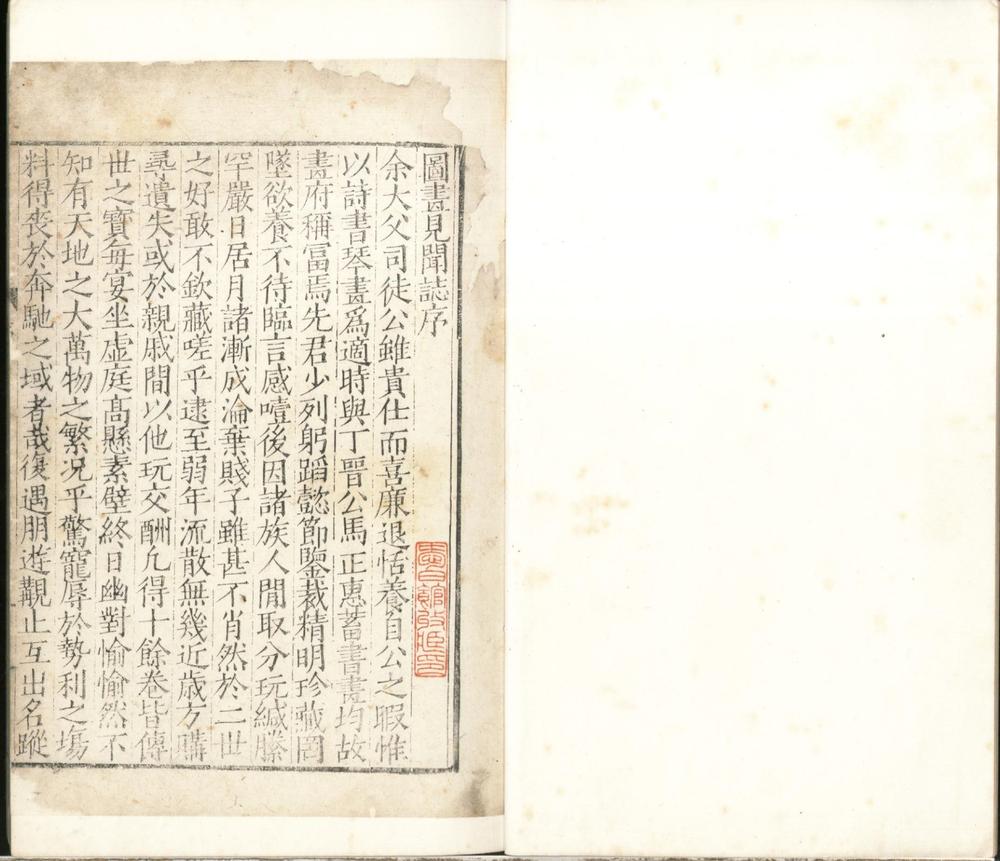 圖畫見聞誌序
余大父司徒公雖貴仕而喜廉退恬養自公之暇惟
以詩書琴畫爲適時與丁晉公馬正惠蓄書畫均故
畫府稱富焉先君少列躬蹈懿節鑒裁精明珍藏罔
墜欲養不待臨言感噎後因諸族人閒取分玩緘縢
罕嚴日居月諸漸成淪棄賤子雖甚不肖然於二世
之好敢不欽藏嗟乎逮至弱年流散無幾近歲方購
尋遺失或於親戚間以他玩交酬凢得十餘卷皆傳
世之寶每宴坐虛庭髙懸素壁終日幽對愉愉然不
知有天地之大萬物之繁況乎驚寵辱於勢利之塲
料得喪於奔馳之域者哉復遇朋遊觀止互出名蹤